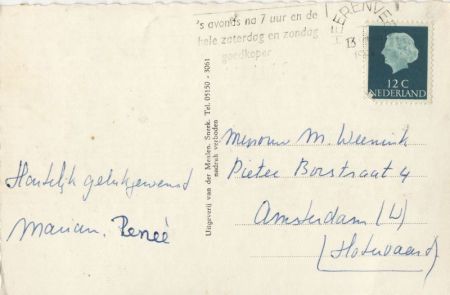 's avonds na 7 uur en de
hele zaterdag en zondag
goedkoper
13
12 C
NEDERLAND
Uitgeverij van der Meulen. Sneek. Tel. 05150 - 3061
nadruk verboden
Hartelijk gefeliciteerd
Marian. Reneé
Mevrouw M. Weenink
Pieter Borstraat 4
Amsterdam (W)
(Slotervaard)